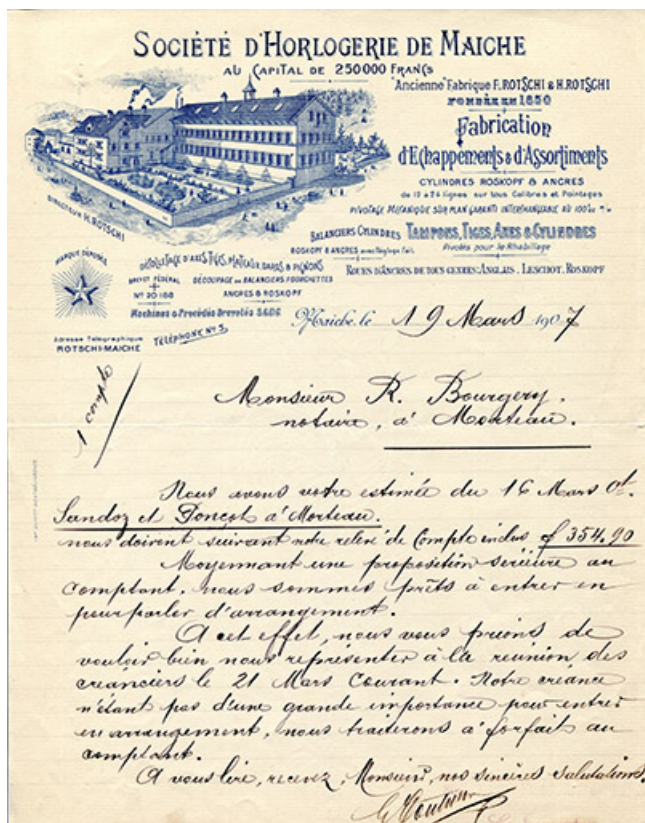 SOCIÉTÉ D'HORLOGERIE DE MAICHE
AU CAPITAL DE 250000 FRANCS
"Ancienne" Fabrique F. ROTSCHI & H. ROTSCHI
FONDÉE EN 1850
Fabrication
d'Echappements & d'Assortiments
CYLINDRES ROSKOPF & ANCRES
de 10 à 24 lignes sur tous Calibres et Pointages
PIVOTAGE MÉCANIQUE SUR PLAN GARANTI INTERCHANGEABLE AU 100e
DIRECTEUR H. ROTSCHI
BALANCIERS CYLINDRES
ROSKOPF & ANCRES avec Réglage fait.
TAMPONS, TIGES, AXES & CYLINDRES
Pivotés pour le Rhabillage
ROUES D'ANCRES DE TOUS GENRES: ANGLAIS, LESCHOT, ROSKOPF
MARQUE DÉPOSÉE
DÉCOLLETAGE D'AXES, TIGES, PLATEAUX, DARDS & PIGNONS
BREVET FÉDÉRAL
No 20168
DÉCOUPAGE DE BALANCIERS FOURCHETTES
ANCRES & ROSKOPF
Machines & Procédés Brevetés S.G.D.G.
Adresse Télégraphique
ROTSCHI-MAICHE
TÉLÉPHONE No 5
Maiche, le 19 Mars 1907
1 compte
Monsieur R. Bourgery.
notaire, à Morteau.
Nous avons votre estimée du 16 Mars Ct.
Sandoz et Donçot à Morteau.
nous doivent suivant notre relevé de Compte inclus f 354.90
Moyennant une proposition sérieuse au
comptant, nous sommes prêts à entrer en
pourparler d'arrangement.
A cet effet, nous vous prions de
vouloir bien nous représenter à la réunion des
créanciers le 21 Mars Courant. Notre créance
n'étant pas d'une grande importance pour entrer
en arrangement, nous traiterons à forfait au
comptant.
A vous lire, recevez, Monsieur, nos sincères salutations.